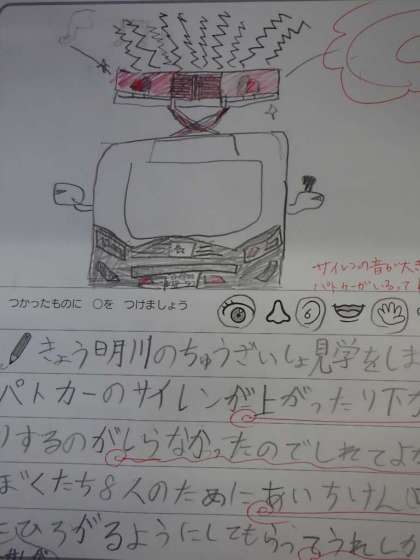 サイレンの音が大き
パトカーがいるって
つかったものに ○を つけましょう
きょう明川のちゅうざいしょ見学をしま
パトカーのサイレンが上がったり下が
りするのがしらなかったのでしれてよか
ぼくたち8人のためにあいちけん
ひろがるようにしてもらってうれしか